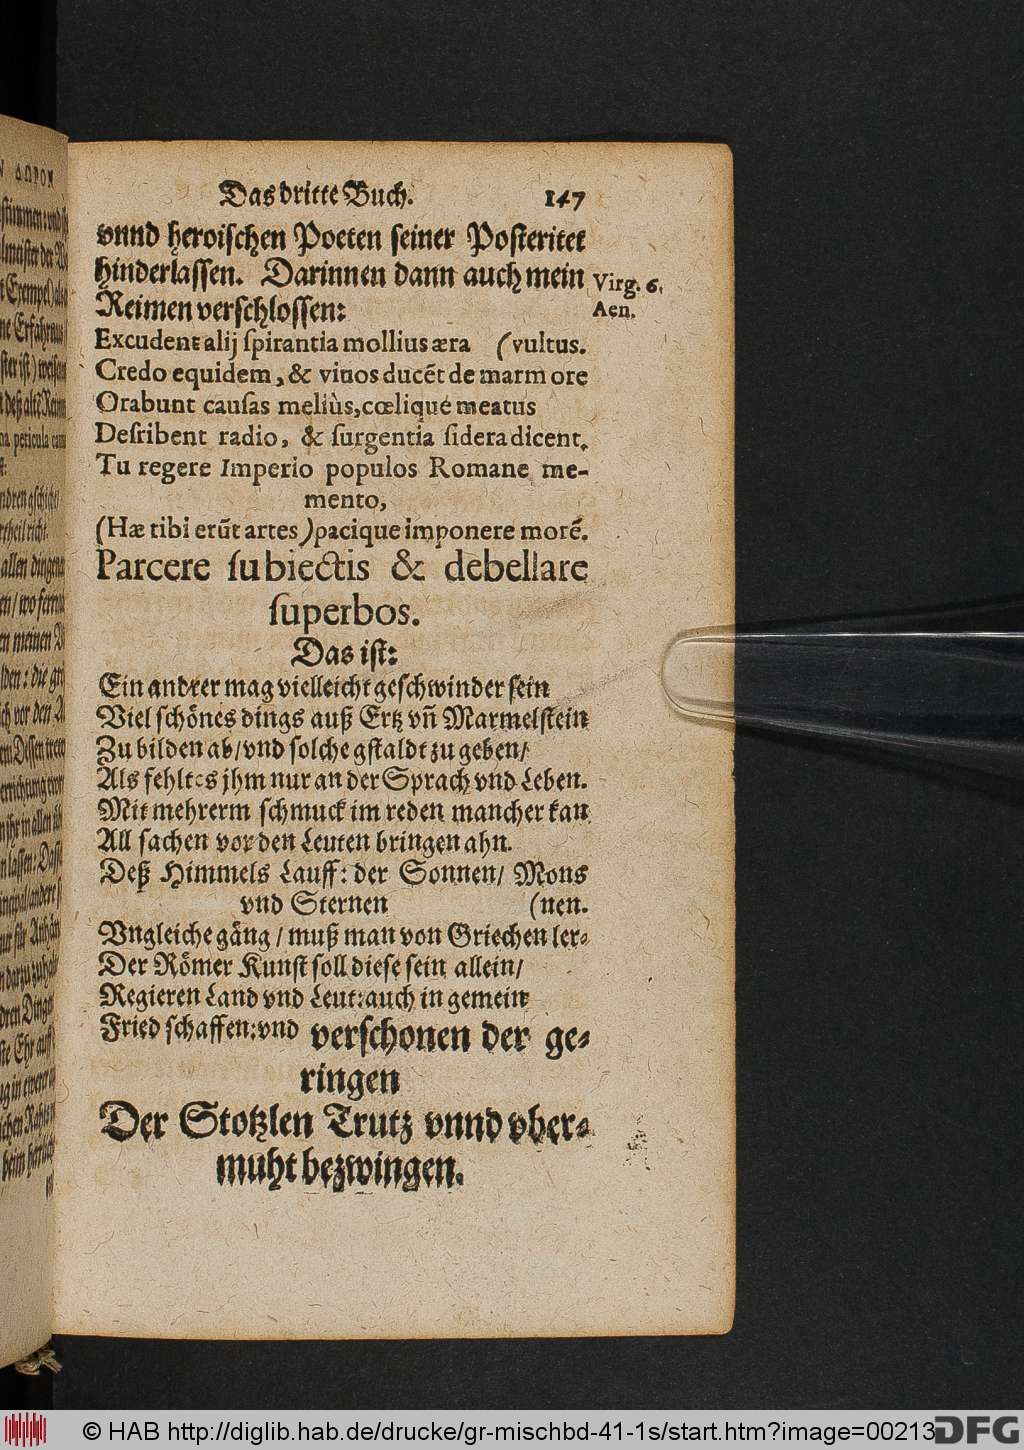 Das dritte Buch. 147
vnnd heroischen Poeten seiner Posteritet
hinderlassen. Darinnen dann auch mein
Reimen verschlossen:
Virg. 6.
Aen.
Excudent alij ſpirantia mollius æra (vultus.
Credo equidem, & viuos ducēt de marmore
Orabunt cauſas meliùs, cœliqué meatus
Deſribent radio, & ſurgentia ſidera dicent.
Tu regere Imperio populos Romane me-
mento,
(Hæ tibi erūt artes) pacique imponere morē.
Parcere ſubiectis & debellare
ſuperbos.
Das ist:
Ein andrer mag vielleicht geschwinder sein
Viel schönes dings auß Ertz vn̄ Marmelstein
Zu bilden ab/ vnd solche gstaldt zu geben/
Als fehlt es jhm nur an der Sprach vnd Leben.
Mit mehrerm schmuck im reden mancher kan
All sachen vor den Leuten bringen ahn.
Deß Himmels Lauff: der Sonnen/ Mons
vnd Sternen (nen.
Vngleiche gäng/ muß man von Griechen ler-
Der Römer Kunst soll diese sein allein/
Regieren Land vnd Leut: auch in gemein
Fried schaffen: vnd verschonen der ge-
ringen
Der Stotzlen Trutz vnnd vber-
muht bezwingen.
ΔΩΡΟΝ
© HAB http://diglib.hab.de/drucke/gr-mischbd-41-1s/start.htm?image=00213
DFG